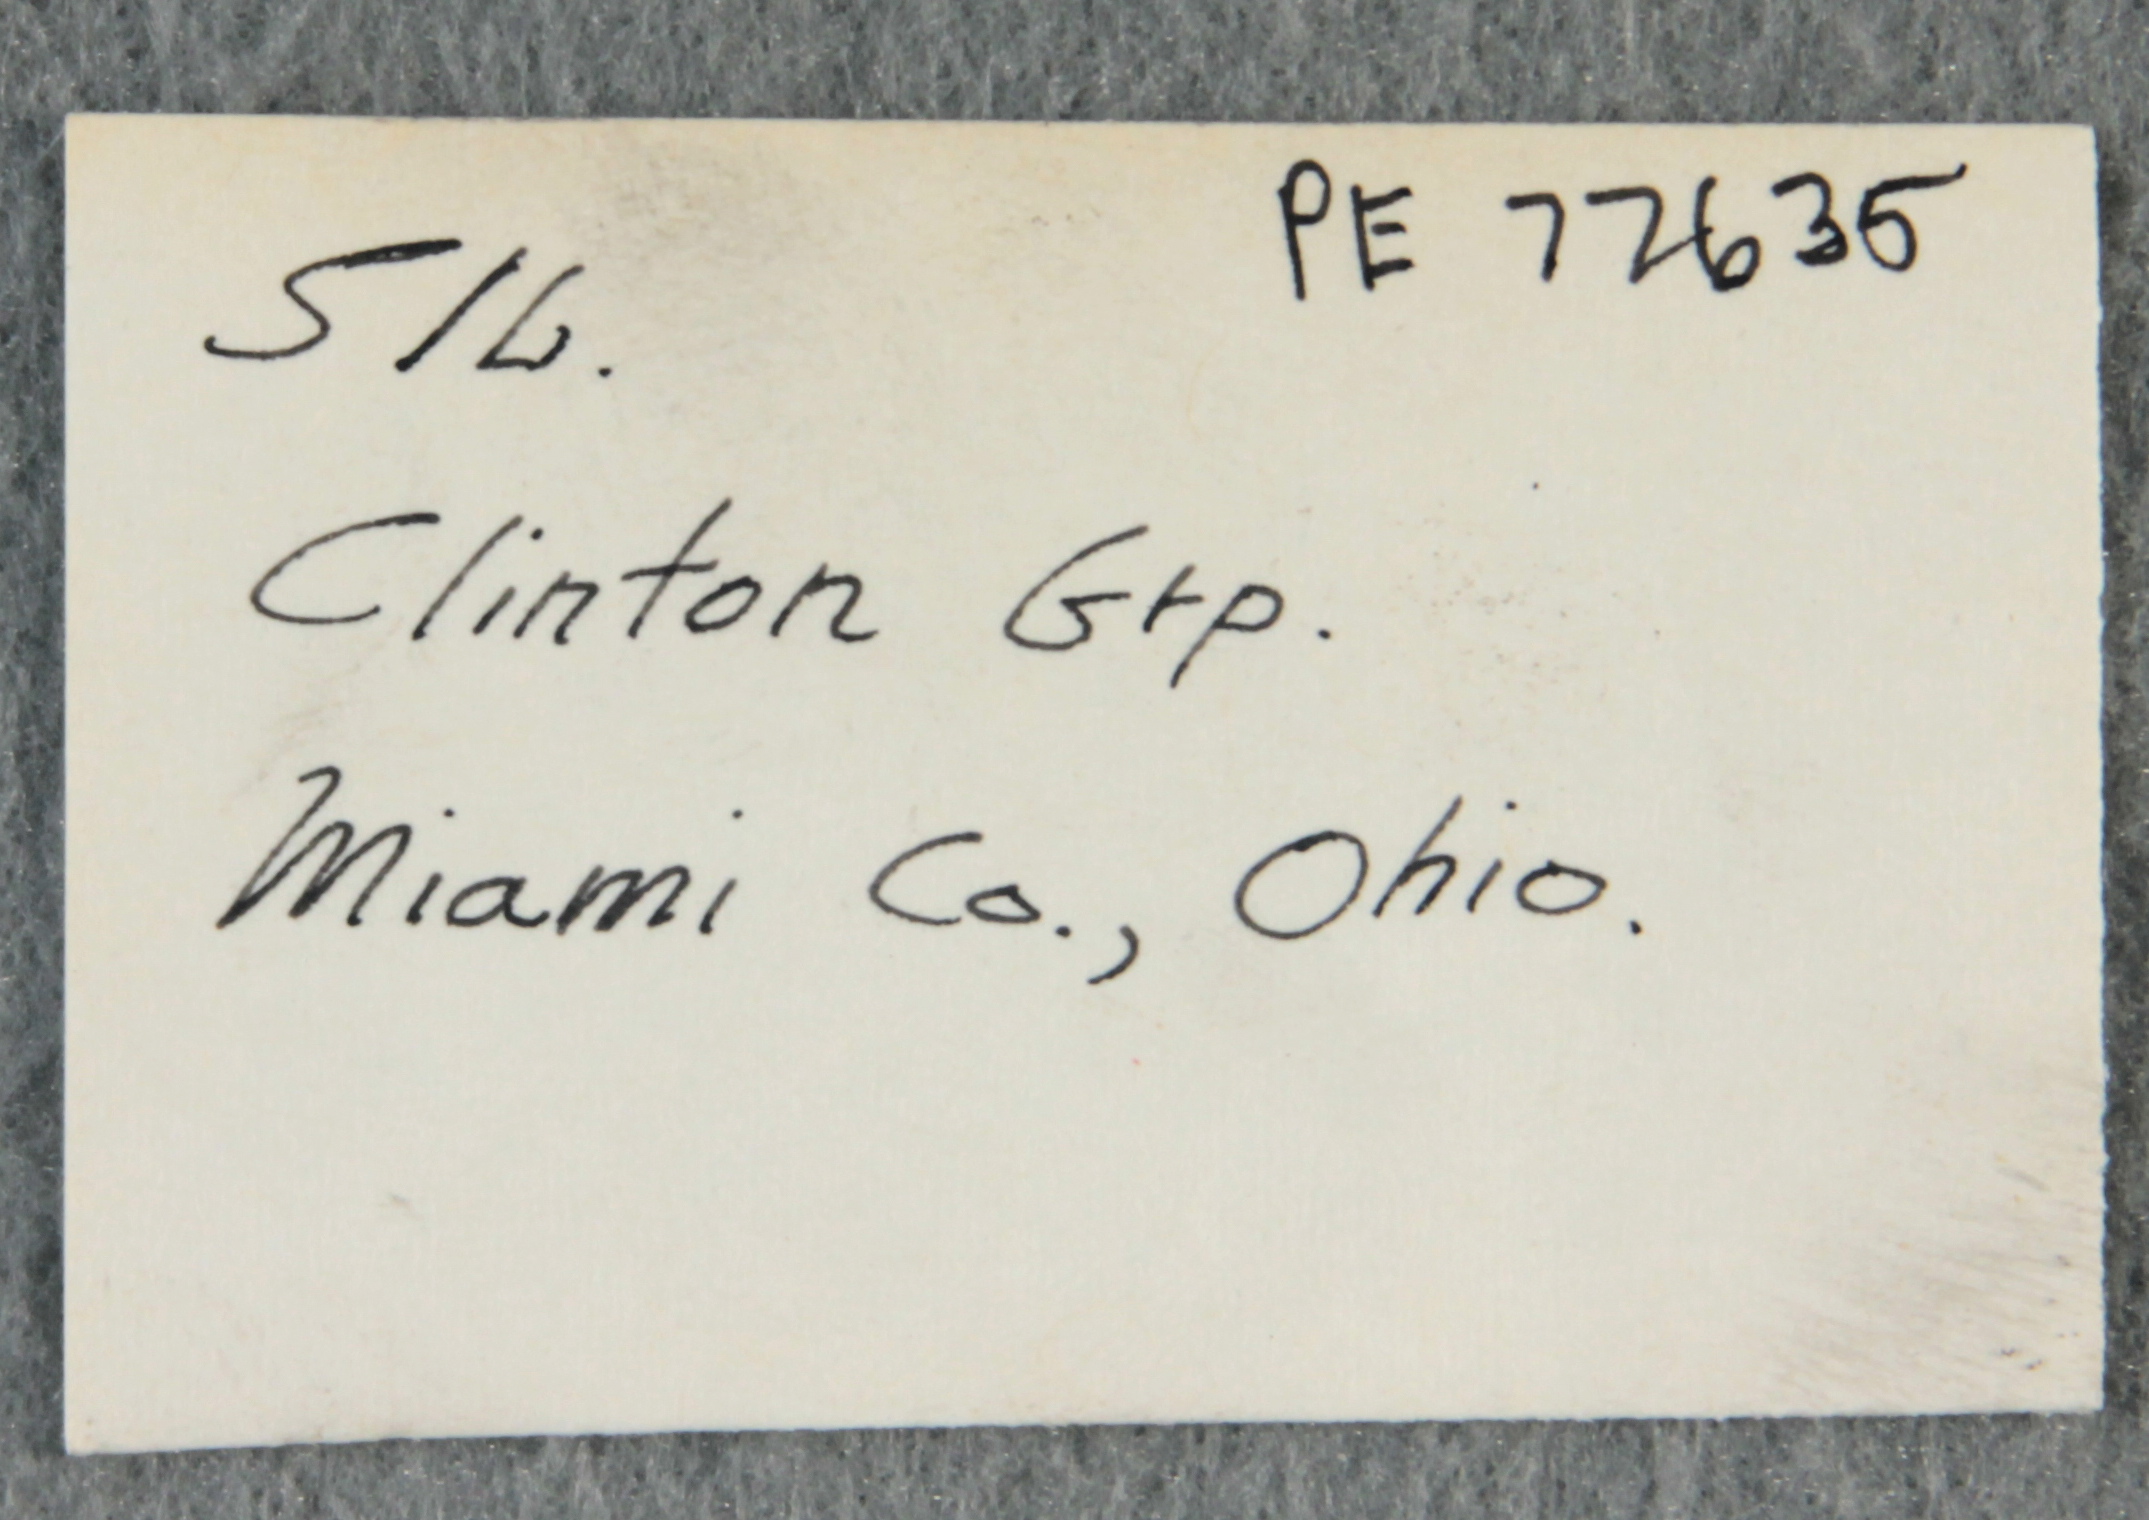 PE 77635
Slb.
Clinton Grp.
Miami Co., Ohio.